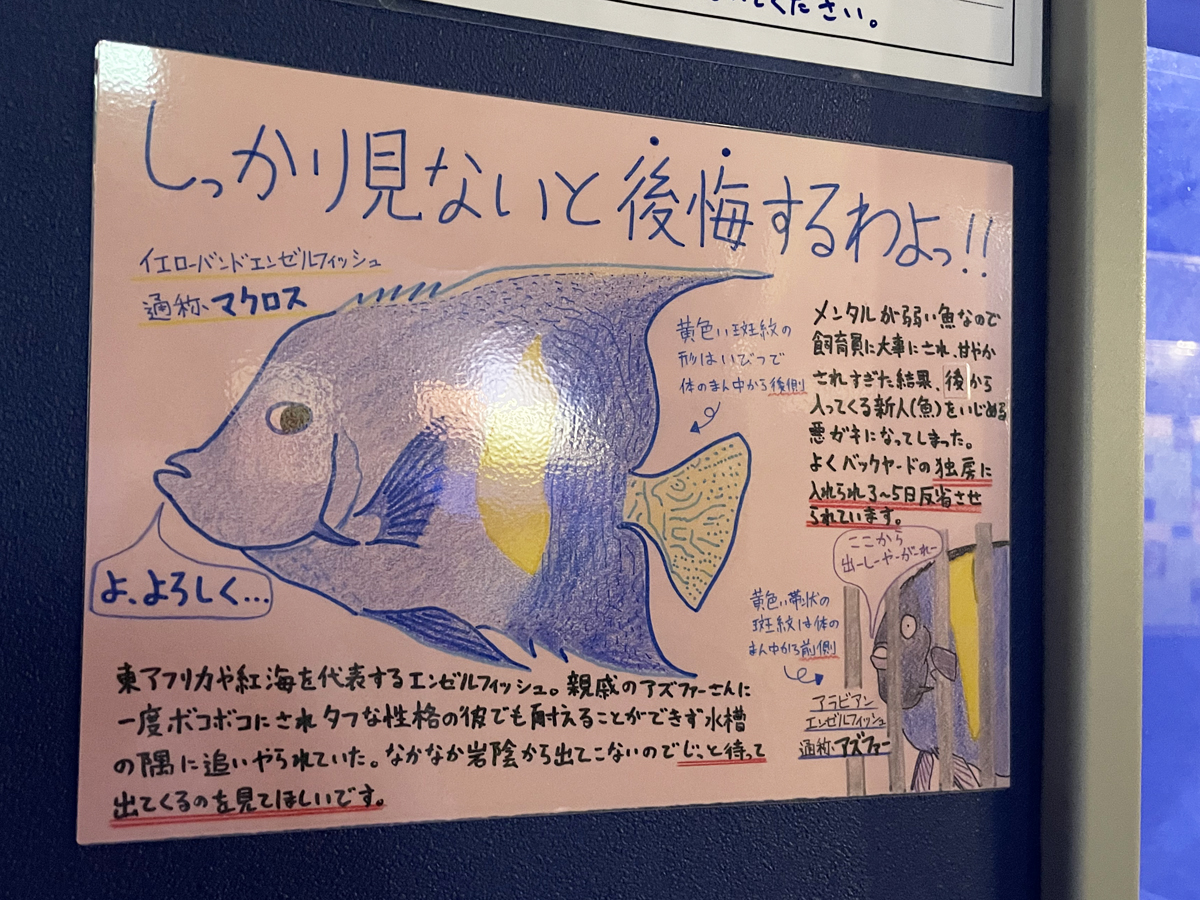 ください。
しっかり見ないと後悔するわよっ!!
イエローバンドエンゼルフィッシュ
通称、マクロス
黄色い斑紋の
形はいびつで
体のまん中から後側
メンタルが弱い魚なので
飼育員に大事にされ、甘やか
されすぎた結果、後から
入ってくる新人(魚)をいじめる
悪ガキになってしまった。
よくバックヤードの独房に
入れられ3~5日反省させ
られています。
ここから
出ーしーやーがーれー
よ、よろしく…
黄色い帯状の
斑紋は体の
まん中から前側
アラビアン
エンゼルフィッシュ
通称、アズファー
東アフリカや紅海を代表するエンゼルフィッシュ。親戚のアズファーさんに
一度ボコボコにされタフな性格の彼でも耐えることができず水槽
の隅に追いやられていた。なかなか岩陰から出てこないのでじっと待って
出てくるのを見てほしいです。